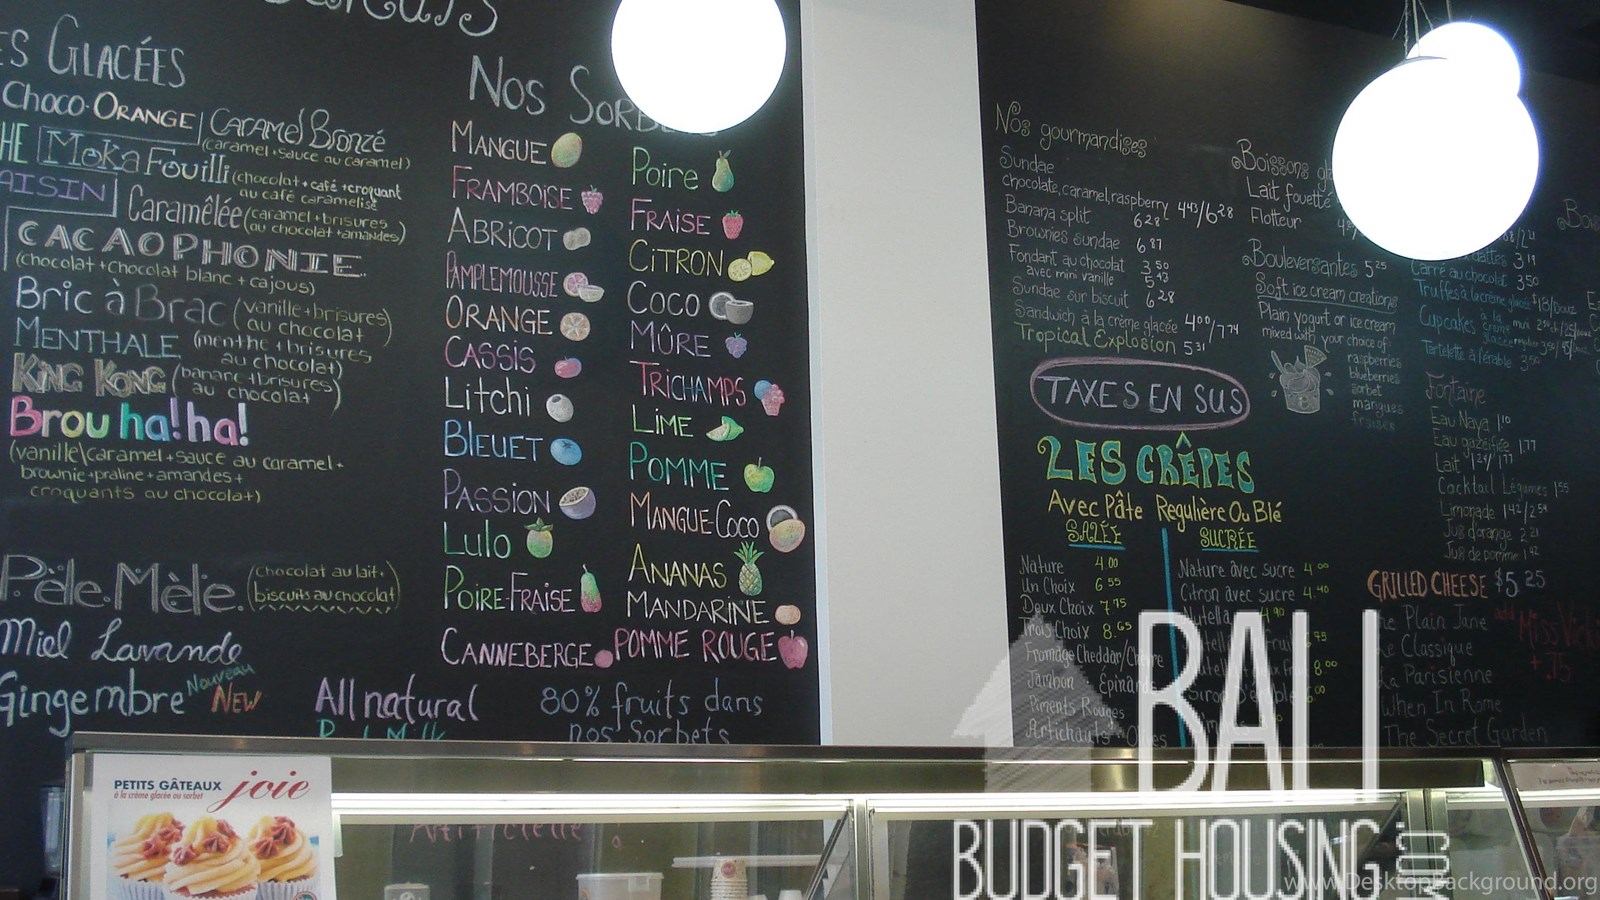 GLACÉES
Choco-ORANGE
CARAMEL Bronzé
(caramel+sauce au caramel)
Moka Fouilli (chocolat+café+croquant
au café caramélisé
Caramêlée (caramel+brisures
au chocolat+amandes)
CACAOPHONIE
(chocolat+chocolat blanc+cajous)
Bric à Brac (vanille+brisures)
au chocolat
MENTHALE (menthe+brisures
au chocolat)
KING KONG (banane+brisures)
au chocolat
Brou ha! ha!
(vanille\caramel+sauce au caramel+
brownie+praline+amandes+
croquants au chocolat)
Pêle.Mêle. (chocolat au lait+
biscuits au chocolat)
Miel Lavande
Gingembre Nouveau NEW
All natural
80% fruits dans
nos Sorbets
Nos
MANGUE
FRAMBOISE
ABRICOT
PAMPLEMOUSSE
ORANGE
CASSIS
Litchi
BLEUET
PASSION
Lulo
POIRE-FRAISE
CANNEBERGE
Poire
FRAISE
CITRON
COCO
MÛRE
TRICHAMPS
LIME
POMME
MANGUE-COCO
ANANAS
MANDARINE
POMME ROUGE
Nos gourmandises
Sundae
chocolate, caramel, raspberry 4.43/6.28
Banana split 6.28
Brownies sundae 6.87
Fondant au chocolat 3.50
avec mini vanille 5.43
Sundae sur biscuit 6.28
Sandwich à la crème glacée 4.00/7.74
Tropical Explosion 5.31
TAXES EN SUS
LES CRÊPES
Avec Pâte Regulière Ou Blé
SALÉE
Nature 4.00
Un Choix 6.55
Deux Choix 7.75
Trois Choix 8.65
Fromage Cheddar/Chèvre
Jambon Épinards
Piments Rouges
Artichauts
SUCRÉE
Nature avec sucre 4.00
Citron avec sucre 4.40
Nutella 4.90
Boissons
Lait fouetté
Flotteur
Bouleversantes 5.25
Soft ice cream creations
Plain yogurt or ice cream
mixed with your choice of:
raspberries
blueberries
sorbet
mangues
fraises
Carré au chocolat 3.50
Truffes à la crème glacée
Cupcakes
Tartelette à l'érable 3.50
Fontaine
Eau Naya 1.10
Eau gazéifiée 1.77
Lait 1.24/1.77
Cocktail Légumes 1.55
Limonade 1.42/2.54
Jus d'orange 2.21
Jus de pomme 1.42
GRILLED CHEESE $5.25
Plain Jane
Le Classique
La Parisienne
When In Rome
The Secret Garden
PETITS GÂTEAUX joie
à la crème glacée ou sorbet
BALI
BUDGET HOUSING
.COM
www.DesktopBackground.org